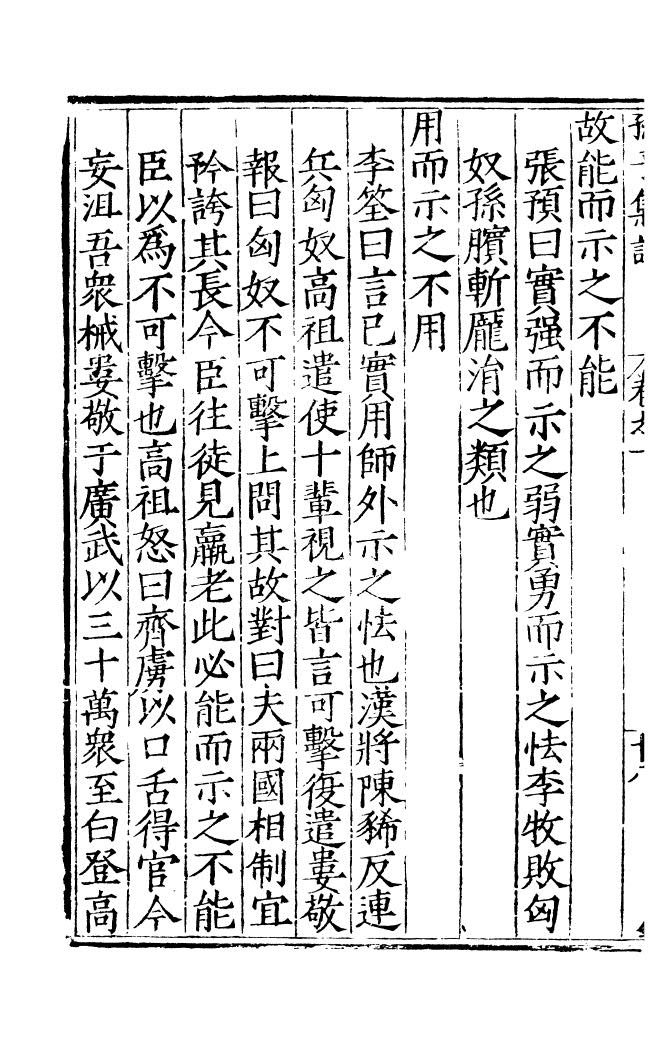 故能而示之不能
張預曰實强而示之弱實勇而示之怯李牧敗匈
奴孫臏斬龐涓之類也
用而示之不用
李筌曰言已實用師外示之怯也漢將陳豨反連
兵匈奴高祖遣使十輩視之皆言可擊復遣婁敬
報曰匈奴不可擊上問其故對曰夫兩國相制宜
矜誇其長今臣往徒見羸老此必能而示之不能
臣以爲不可擊也高祖怒曰齊虜以口舌得官今
妄沮吾衆械婁敬于廣武以三十萬衆至白登高